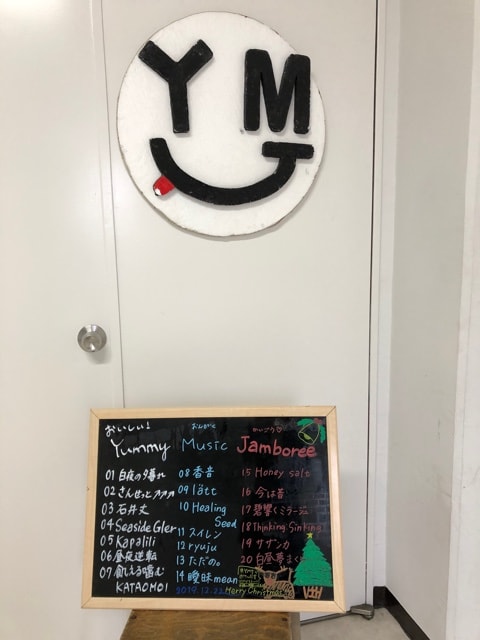 YMJ
おいしい!
Yummy
01 白夜の夕暮れ
02 さんせっとアアア
03 石井丈
04 Seaside Gler
05 Kapalili
06 昼夜逆転
07 飢える噛む
KATAOMOI
おんがく
Music
08 香音
09 lått
10 Healing
Seed
11 スイレン
12 ryuju
13 ただの。
14 曖昧mean
2019.12.22
Jamboree
15 Honey salt
16 今は昔
17 碧響くミラージュ
18 Thinking Sinking!
19 サザンカ
20 白昼夢まぐ
Merry Christmas